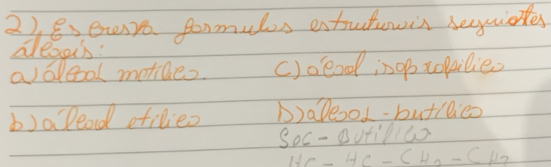 2) Escreva formulas estruturais seguintes
álcoois:
a) álcool metílico. c) álcool isopropílico
b) álcool etílico b) álcool - butílico
Sec - Butílico
HC - HC - CH2 - CH3